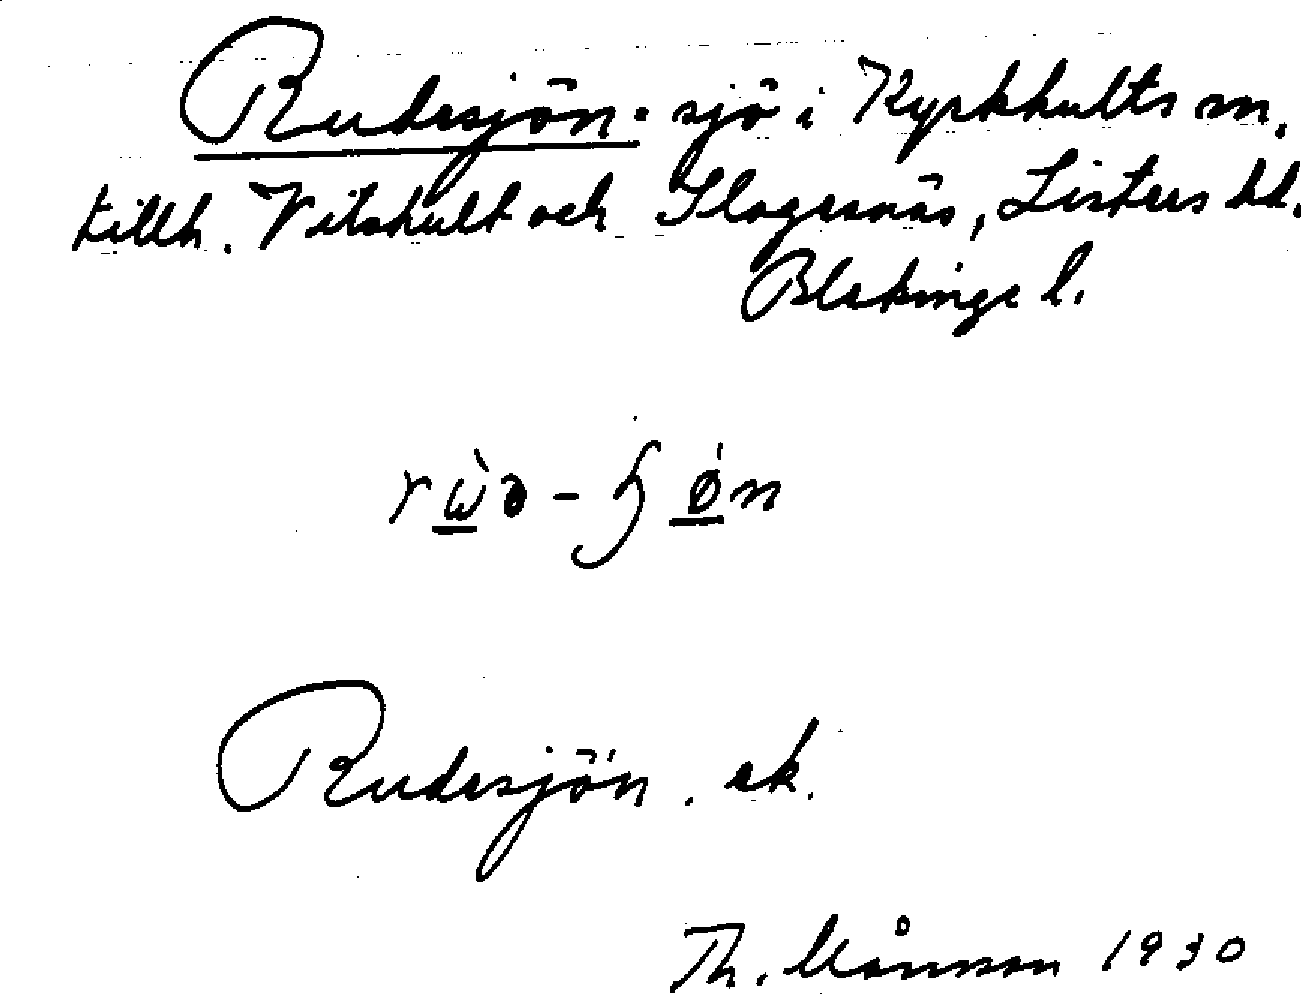 Rudesjön. sjö i Kyrkhults sn.
tillh. Vilshult och Slagesnäs, Listers hd.
Blekinge l.
rὼ̲ə - ɧǿ̲n
Rudesjön. ek.
Th. Månsson 1930